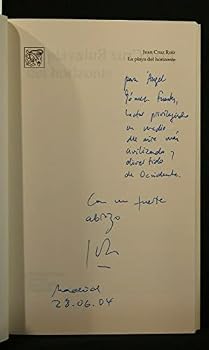 Juan Cruz Ruiz
La playa del horizonte
para Ángel
Gómez Fuentes,
lector privilegiado
en medio
del aire más
civilizado y
divertido
de Occidente.
Con un fuerte
abrazo
Madrid
28.06.04